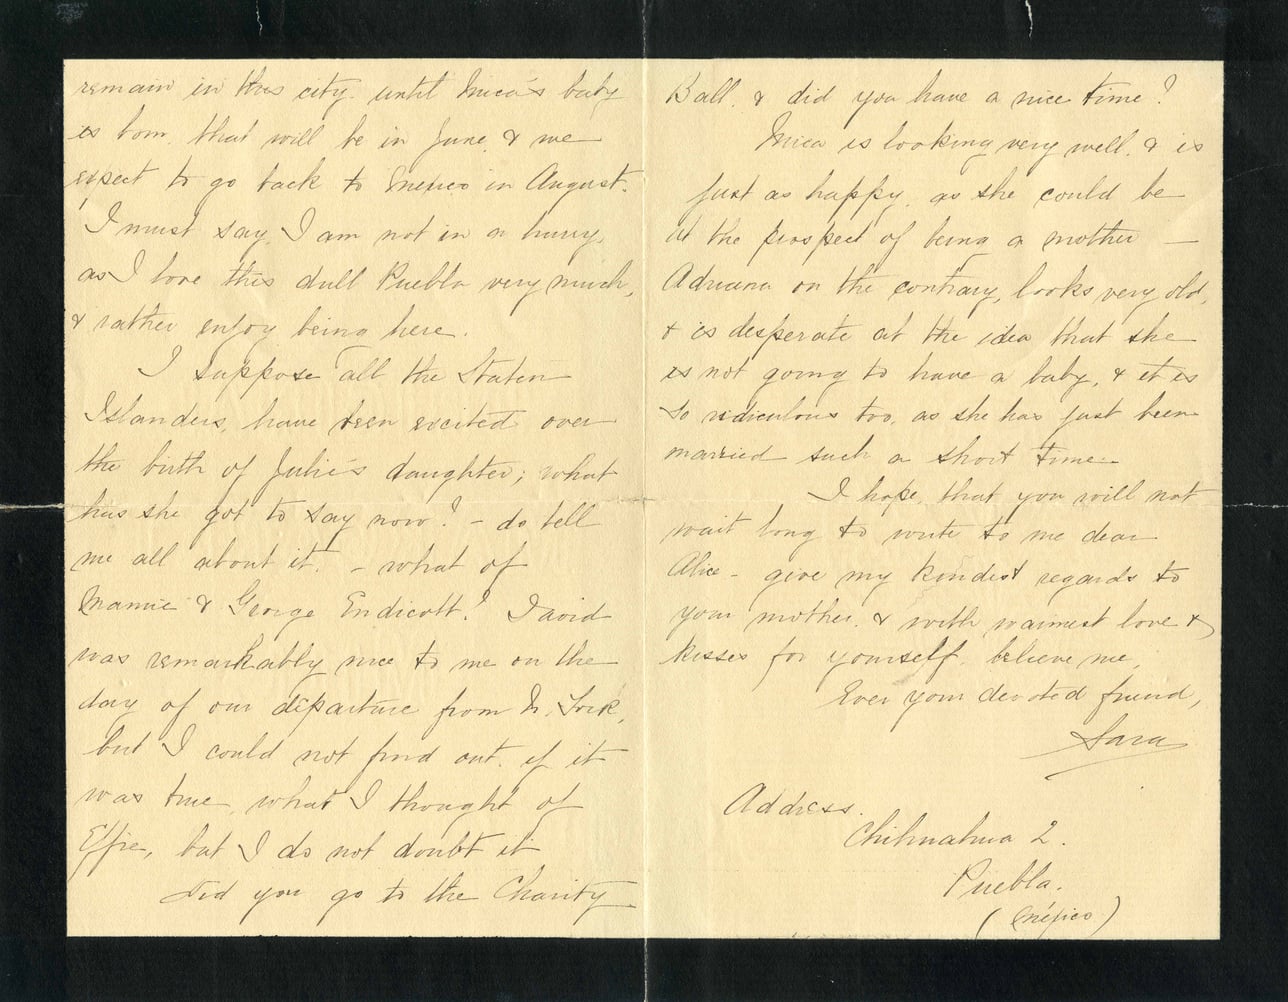 remain in this city. until Mica's baby
is born. that will be in June, & we
expect to go back to Mexico in August.
I must say, I am not in a hurry,
as I love this dull Puebla very much,
& rather enjoy being here.
I suppose all the Staten
Islanders, have been excited over
the birth of Julie's daughter; what
has she got to say now? - do tell
me all about it. - what of
Mamie & George Endicott? David
was remarkably nice to me on the
day of our departure from N. York,
but I could not find out. if it
was true, what I thought of
Effie, but I do not doubt it
Did you go to the Charity
Ball. & did you have a nice time?
Mica is looking very well. & is
just as happy, as she could be
at the prospect of being a mother —
Adriana on the contrary, looks very old,
& is desperate at the idea that she
is not going to have a baby, & it is
so ridiculous too, as she has just been
married such a short time.
I hope, that you will not
wait long to write to me dear
Alice - give my kindest regards to
your mother. & with warmest love &
kisses for yourself. believe me,
Ever your devoted friend,
Sara
Address.
Chihuahua 2.
Puebla.
(Méjico)